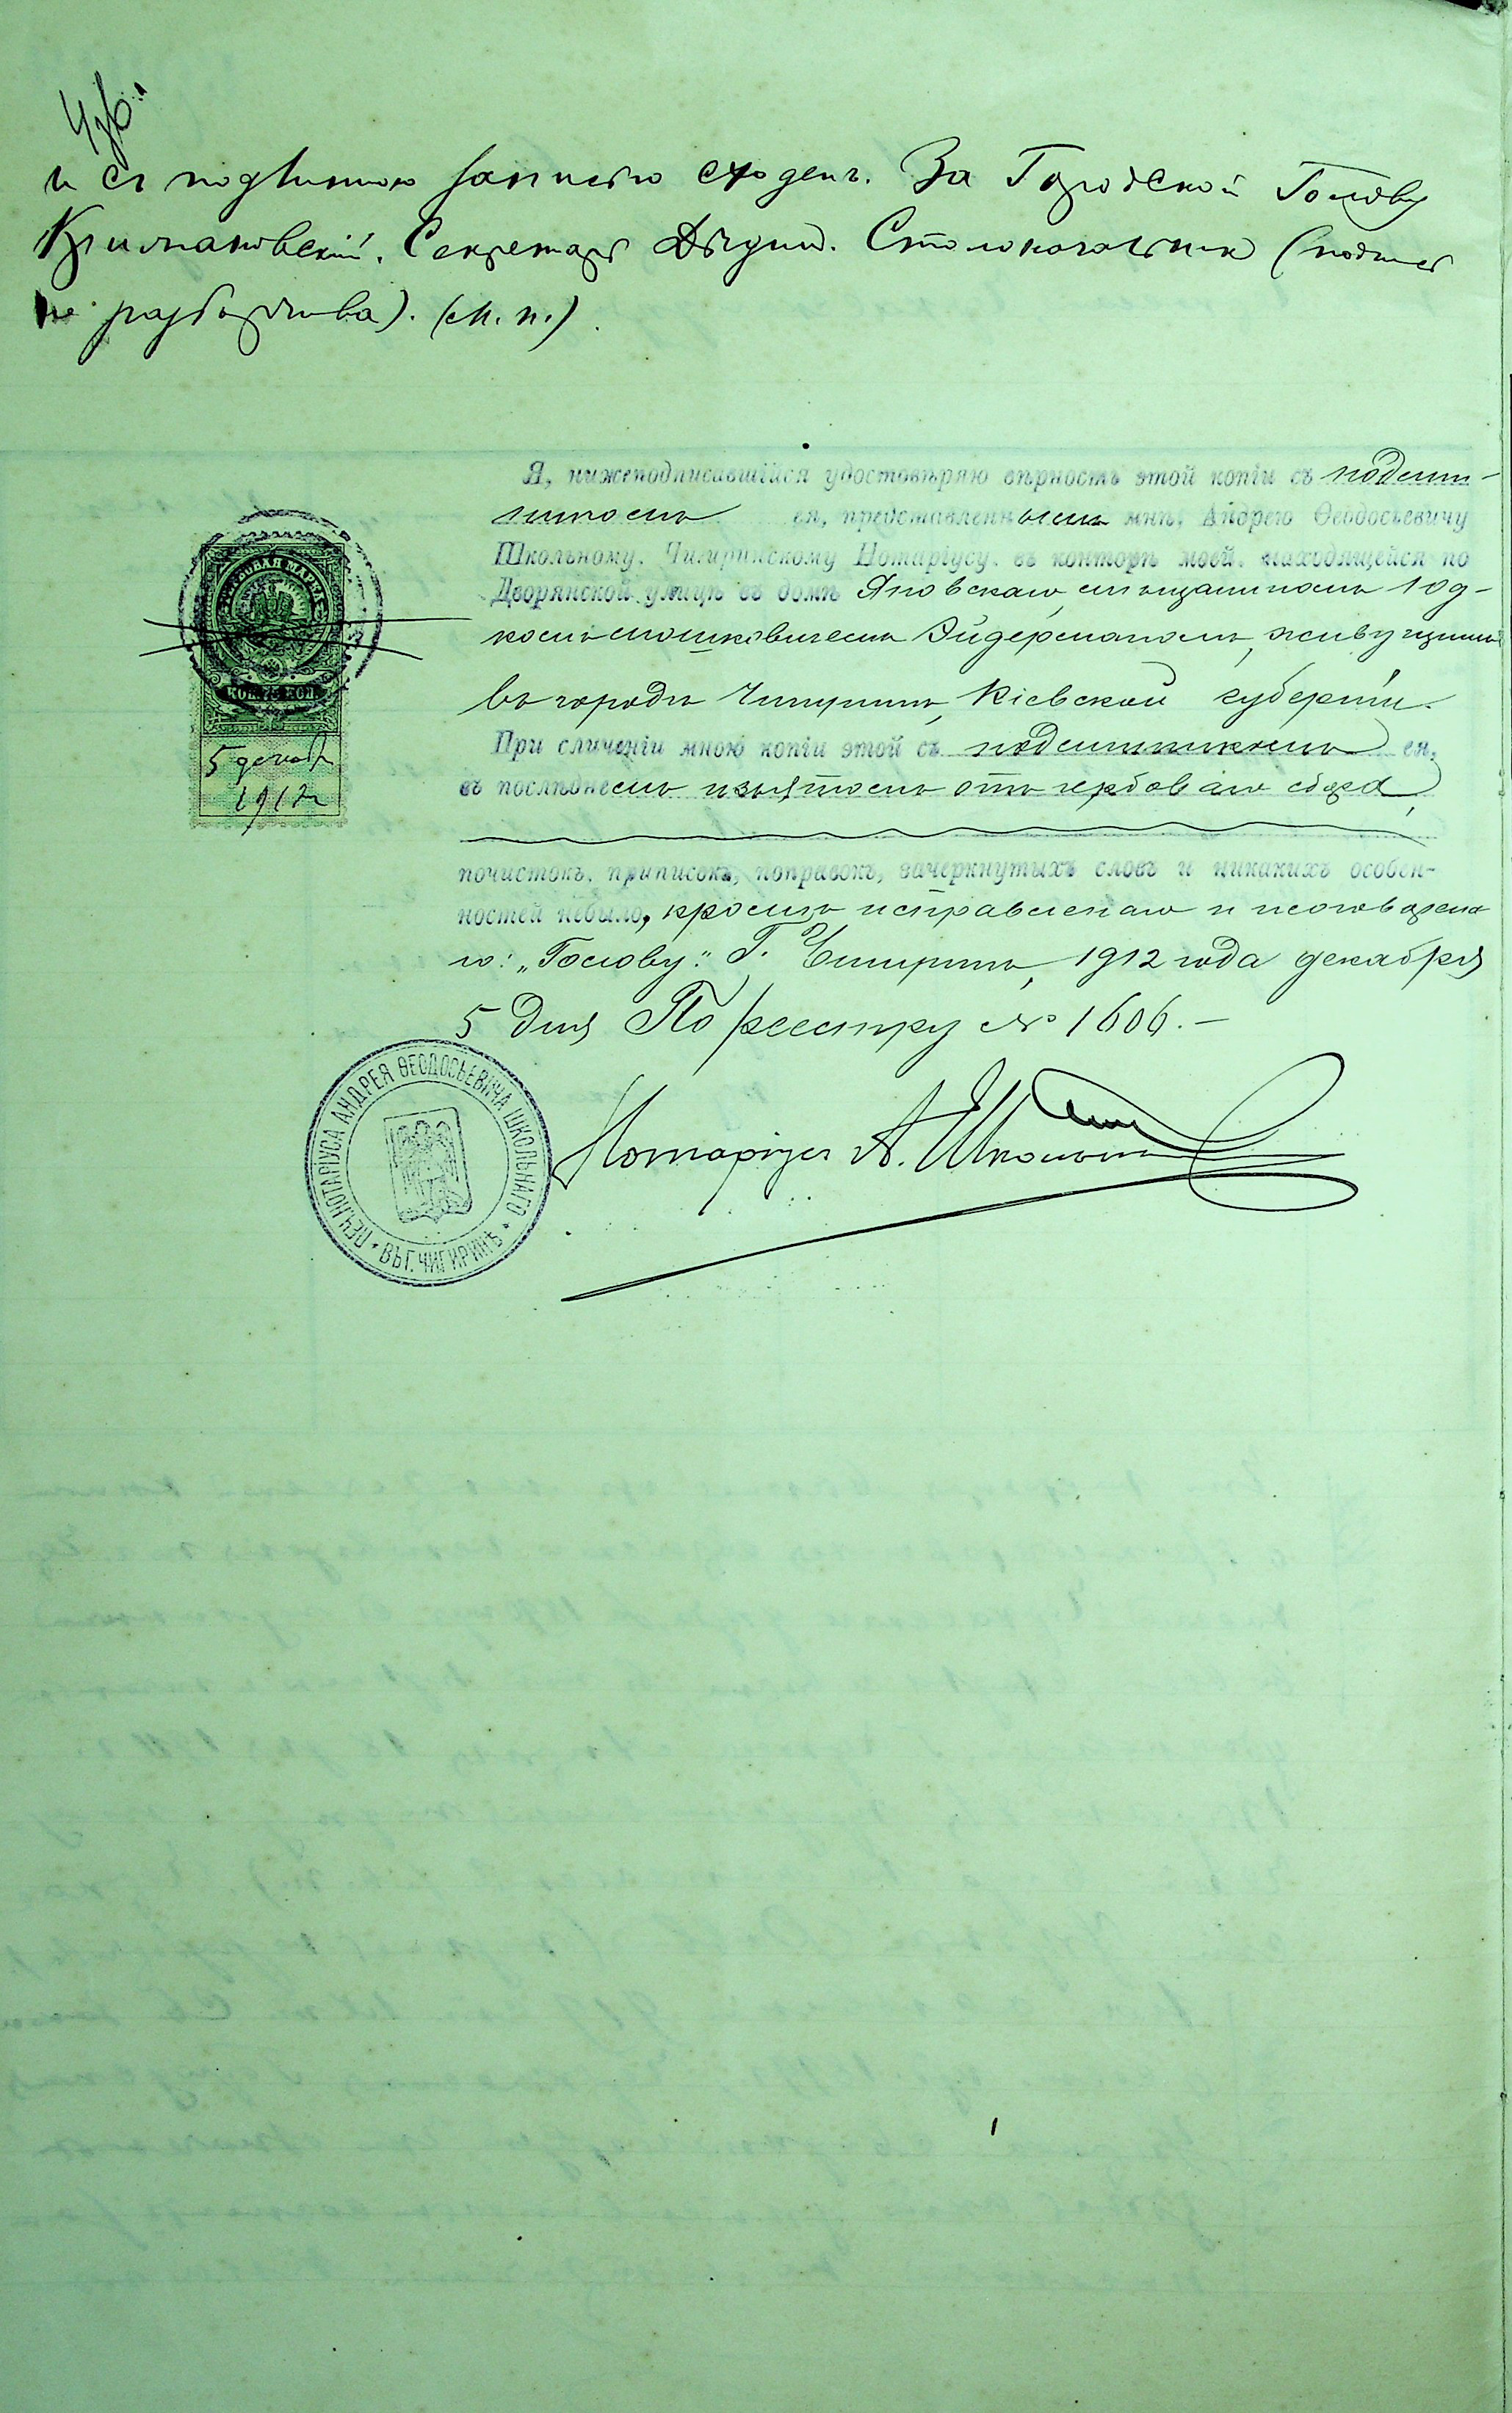 и съ подлинною записью сходенъ. За Городской Голову
Секретарь Столоначальникъ (подпись
не разборчива). (М. п.)
Я, нижеподписавшійся удостовѣряю вѣрность этой копіи съ подлин-
никомъ ея, представленнымъ мнѣ, Андрею Ѳеодосьевичу
Школьному, Чигиринскому Нотаріусу, въ конторѣ моей, находящейся по
Дворянской улицѣ въ домѣ Яновскаго, мѣщаниномъ Юд-
комъ Мошковичемъ Эйдерманомъ, живущимъ
въ городѣ Чигиринѣ, Кіевской губерніи.
При сличеніи мною копіи этой съ подлинникомъ ея,
въ послѣднемъ изъятомъ отъ гербоваго сбора,
почистокъ, приписокъ, поправокъ, зачеркнутыхъ словъ и никакихъ особен-
ностей небыло, кромѣ исправленнаго и неоговоренна
го: „Голову". Г. Чигиринъ, 1912 года декабря
5 дня По реестру № 1606.—
Нотаріусъ А. Школьный
ГЕРБОВАЯ МАРКА
5 декаб
1912
ПЕЧ. НОТАРІУСА АНДРЕЯ ѲЕОДОСЬЕВИЧА ШКОЛЬНАГО * ВЪ Г. ЧИГИРИНѢ *